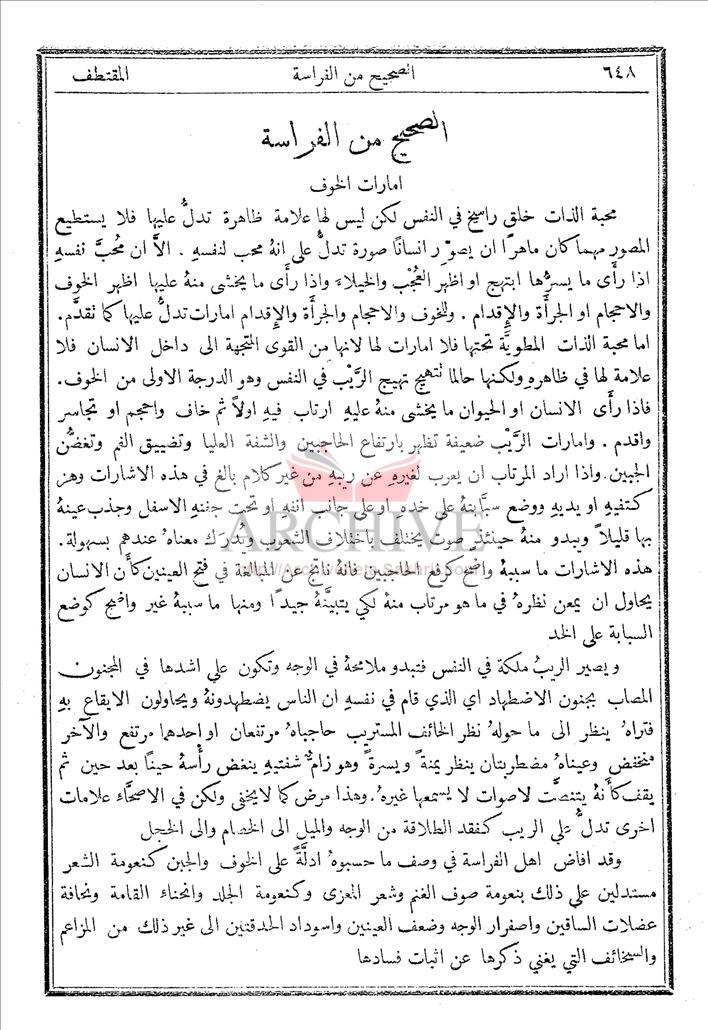 ٦٤٨ الصحيح من الفراسة المقتطف
الصحيح من الفراسة
امارات الخوف
محبة الذات خلق راسخ في النفس لكن ليس لها علامة ظاهرة تدلُّ عليها فلا يستطيع
المصور مهما كان ماهرًا ان يصوّر انسانًا صورة تدلُّ على انهُ محب لنفسهِ . الاَّ ان مُحبَّ نفسهِ
اذا رأَى ما يسرُّها ابتهج او اظهر العُجْب والخيلاءَ واذا رأَى ما يخشى منهُ عليها اظهر الخوف
والاحجام او الجرأَة والإِقدام . وللخوف والاحجام والجرأَة والإِقدام امارات تدلُّ عليها كما نقدَّم .
اما محبة الذات المطويَّة تحتها فلا امارات لها لانها من القوى المتجهة الى داخل الانسان فلا
علامة لها في ظاهرهِ ولكنها حالما تتهيج تهيج الرَّيْب في النفس وهو الدرجة الاولى من الخوف .
فاذا رأَى الانسان او الحيوان ما يخشى منهُ عليهِ ارتاب فيهِ اولاً ثم خاف واحجم او تجاسر
واقدم . وامارات الرَّيْب ضعيفة تظهر بارتفاع الحاجبين والشفة العليا وتضييق الفم وتغضُّن
الجبين . واذا اراد المرتاب ان يعرب لغيرهِ عن ريبهِ من غير كلام بالغ في هذه الاشارات وهز
كتفيهِ او يديهِ ووضع سبَّابتهُ على خدهِ او على جانب انفهِ او تحت جفنهِ الاسفل وجذب عينهُ
بها قليلاً ويبدو منهُ حينئذٍ صوت يختلف باختلاف الشعوب وتُدرَك معناهُ عندهم بسهولة .
هذه الاشارات ما سببهُ واضح كرفع الحاجبين فانهُ ناتج عن المبالغة في فتح العينين كأَن الانسان
يحاول ان يمعن نظرهُ في ما هو مرتاب منهُ لكي يتبيَّنهُ جيدًا ومنها ما سببهُ غير واضح كوضع
السبابة على الخد
ويصير الريب ملكة في النفس فتبدو ملامحهُ في الوجه وتكون على اشدها في المجنون
المصاب بجنون الاضطهاد اي الذي قام في نفسهِ ان الناس يضطهدونهُ ويحاولون الايقاع بهِ
فتراهُ ينظر الى ما حولهُ نظر الخائف المستريب حاجباهُ مرتفعان او احدها مرتفع والآخر
منخفض وعيناهُ مضطربتان ينظر يمنةً ويسرةً وهو زامٌّ شفتيهِ ينغض رأْسهُ حينًا بعد حين ثم
يقف كأَنهُ يتنصَّت لاصوات لا يسمعها غيرهُ . وهذا مرض كما لا يخفى ولكن في الاصحَّاء علامات
اخرى تدلُّ على الريب كفقد الطلاقة من الوجه والميل الى الخصام والى الخجل
وقد افاض اهل الفراسة في وصف ما حسبوهُ ادلَّةً على الخوف والجبن كنعومة الشعر
مستدلين على ذلك بنعومة صوف الغنم وشعر المعزى وكنعومة الجلد وانحناء القامة ونحافة
عضلات الساقين واصفرار الوجه وضعف العينين واسوداد الحدقتين الى غير ذلك من المزاعم
والسخائف التي يغني ذكرها عن اثبات فسادها
ARCHIVE